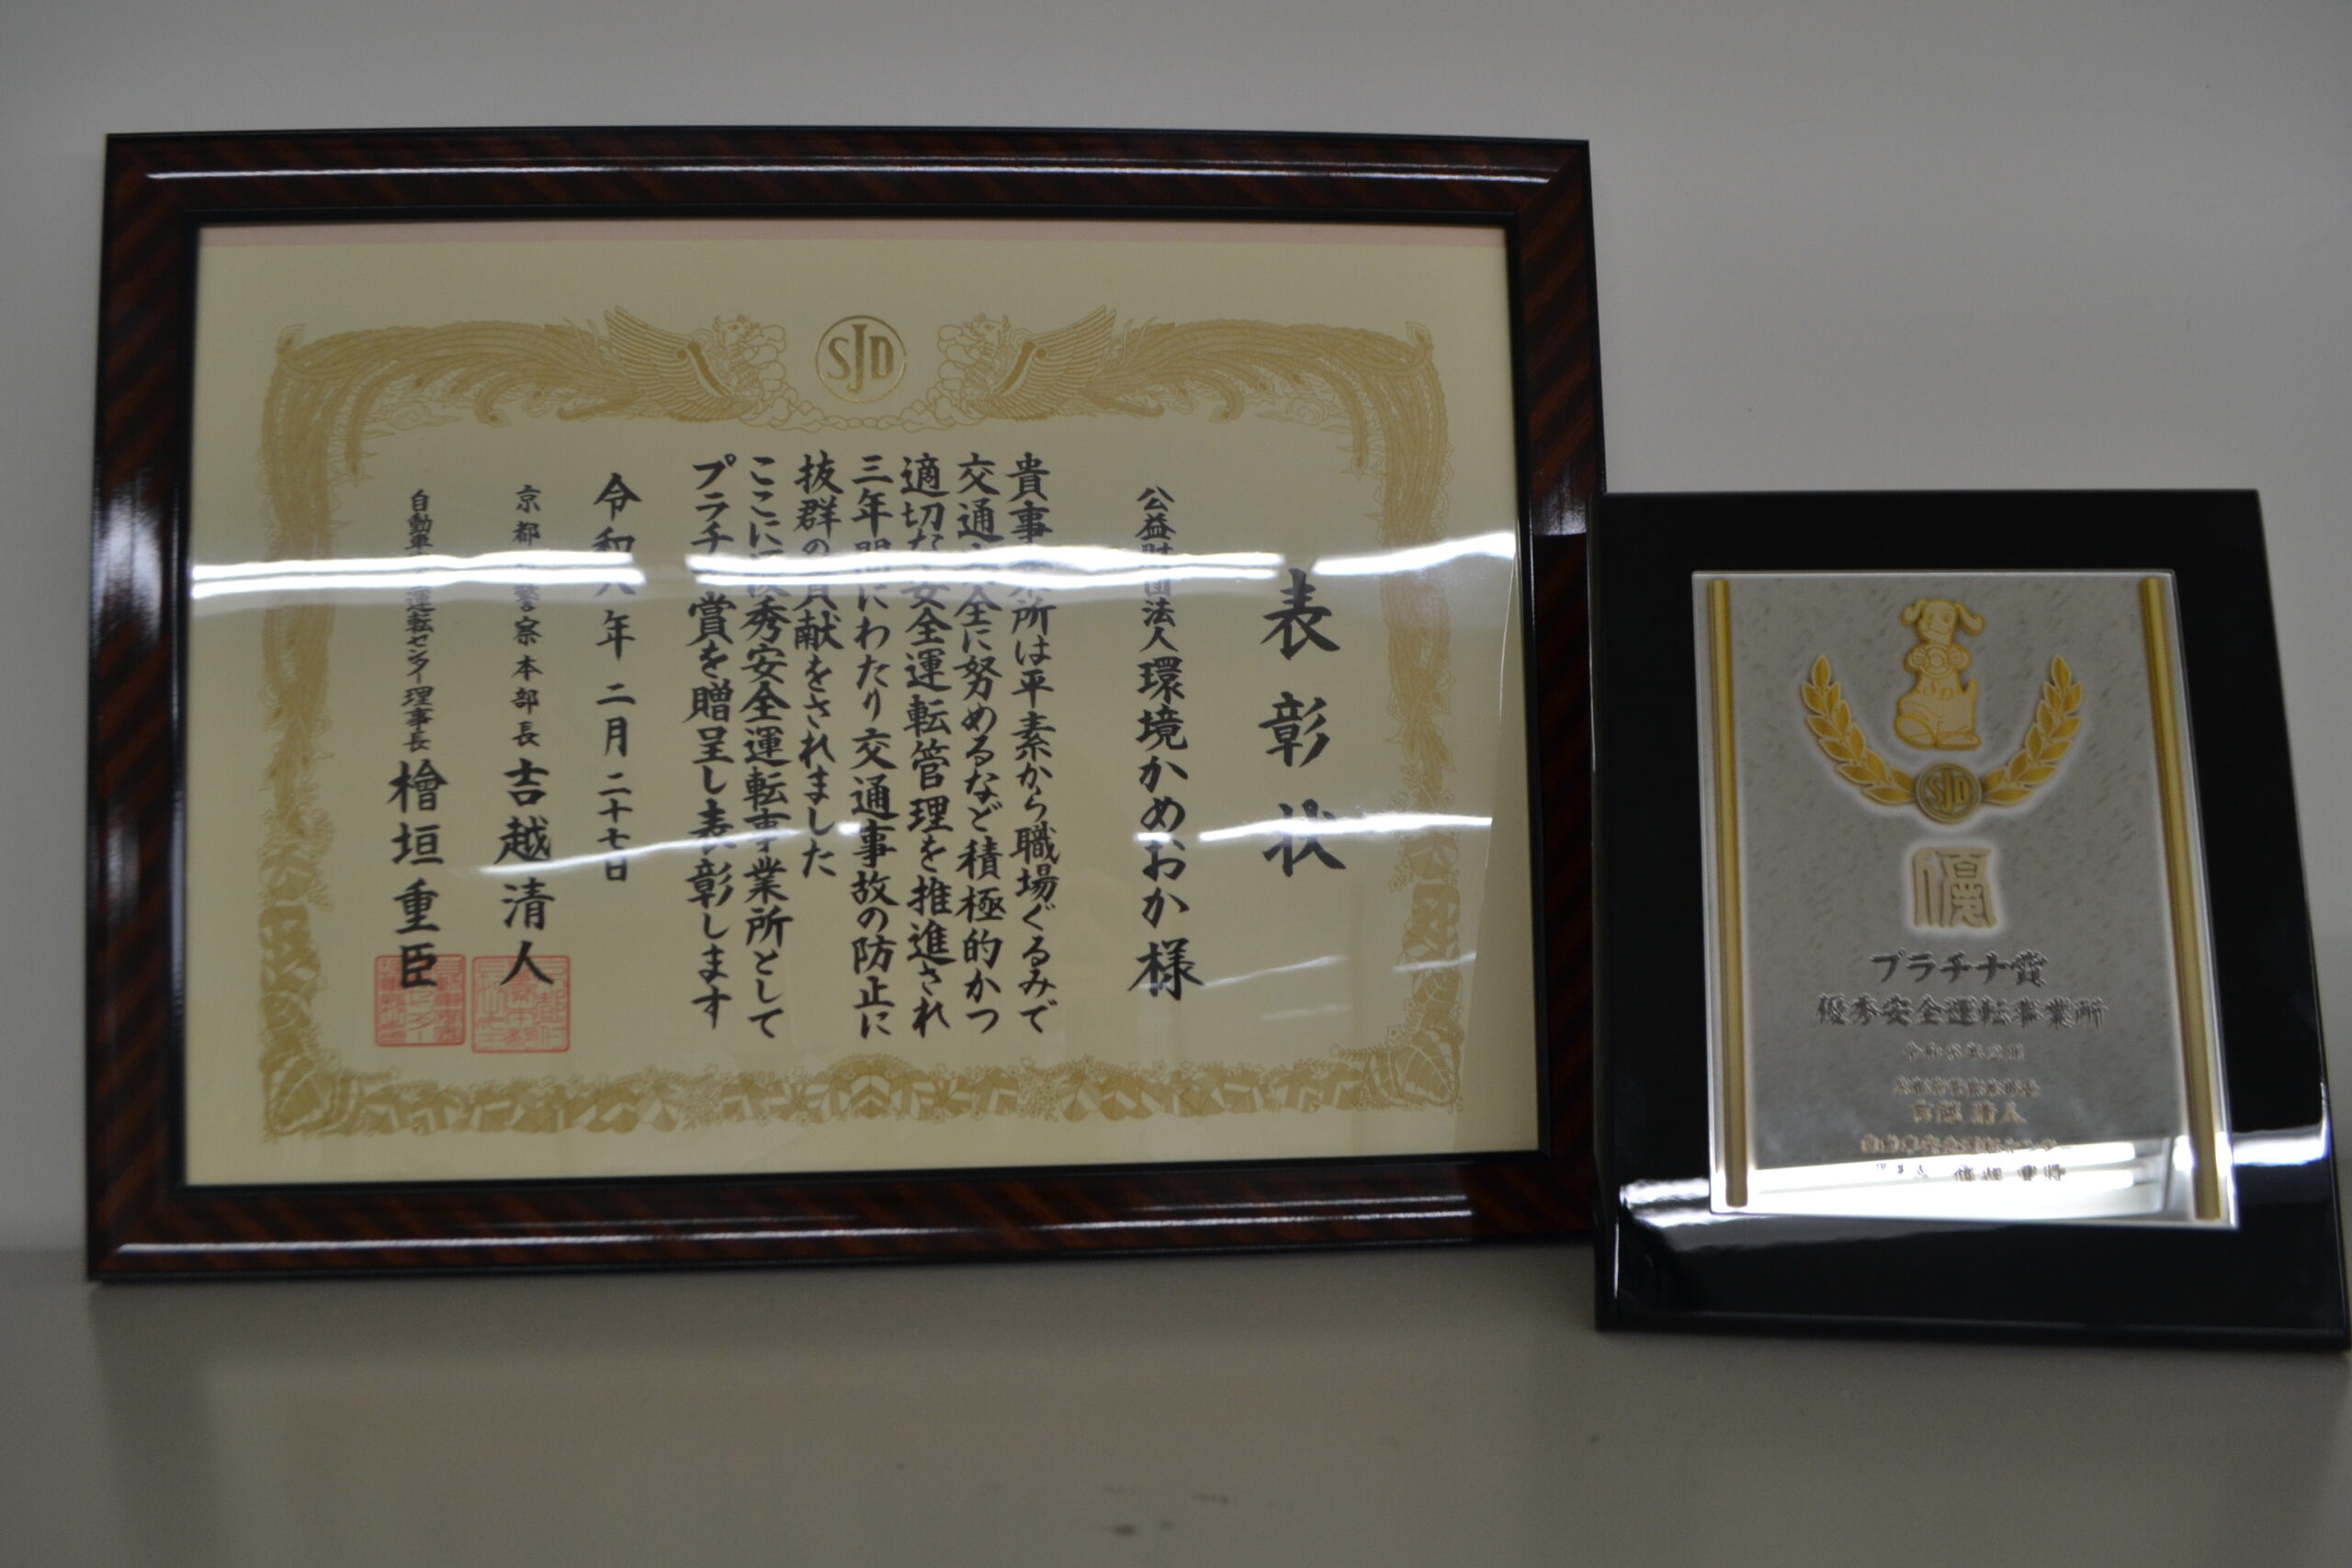 SJD
表彰状
公益財団法人環境かめおか様
貴事業所は平素から職場ぐるみで
交通安全に努めるなど積極的かつ
適切な安全運転管理を推進され
三年間にわたり交通事故の防止に
抜群の貢献をされました
ここに優秀安全運転事業所として
プラチナ賞を贈呈し表彰します
令和八年二月二十七日
京都府警察本部長 吉越清人
自動車安全運転センター理事長 檜垣重臣
SJD
優
プラチナ賞
優秀安全運転事業所